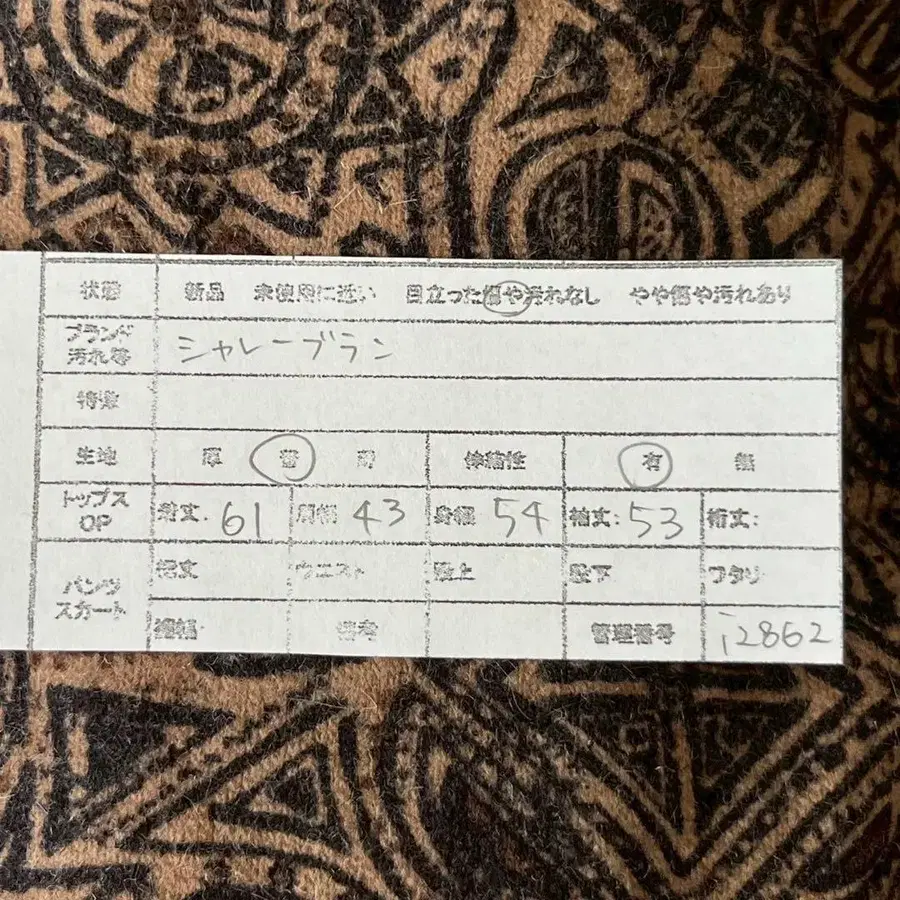 状態 新品 未使用に近い 目立った傷や汚れなし やや傷や汚れあり
ブランド
汚れ等 シャレーブラン
特徴
生地 厚 普 薄 伸縮性 有 無
トップス
OP 着丈. 61 肩幅 43 身幅 54 袖丈: 53 裄丈:
パンツ
スカート 総丈 ウエスト 股上 股下 ワタリ
裾幅 備考 管理番号 i2862